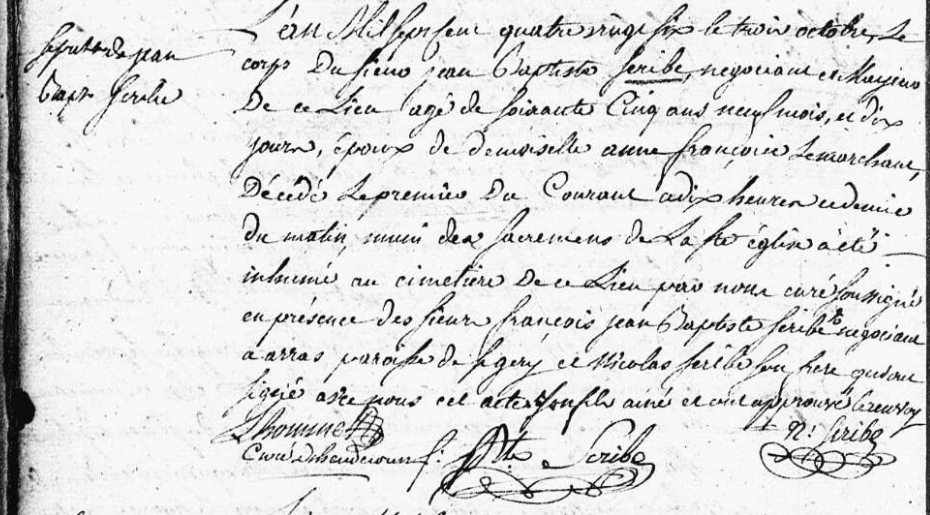 sepult. de jean
Bapt. Scribe
L'an Mil sept cent quatre vingt six le trois octobre, Le
corps Du sieur jean Baptiste Scribe, negociant et Mayeur
De ce Lieu agé de soixante Cinq ans neuf mois, et dix
jours, époux de demoiselle anne françoise Lemarchant,
Décédé Le premier Du Courant a dix heures et demie
du matin, muni des sacremens de La ste église a été
inhumé au cimetière De ce Lieu par nous curé soussigné
en présence des sieurs françois jean Baptiste Scribe + negociant
a arras paroisse de st gery et Nicolas scribe son frere qui ont
signé avec nous cet acte + son fils ainé et ont approuvé le renvoy
Lhommet
Curé
f. j. Bte Scribe
N. Scribe